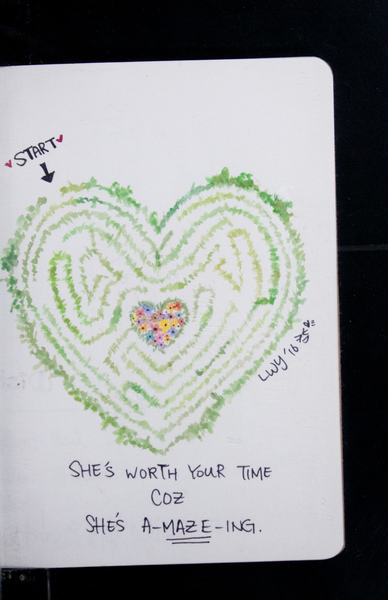 START
LWY '16
SHE'S WORTH YOUR TIME
COZ
SHE'S A-MAZE-ING.